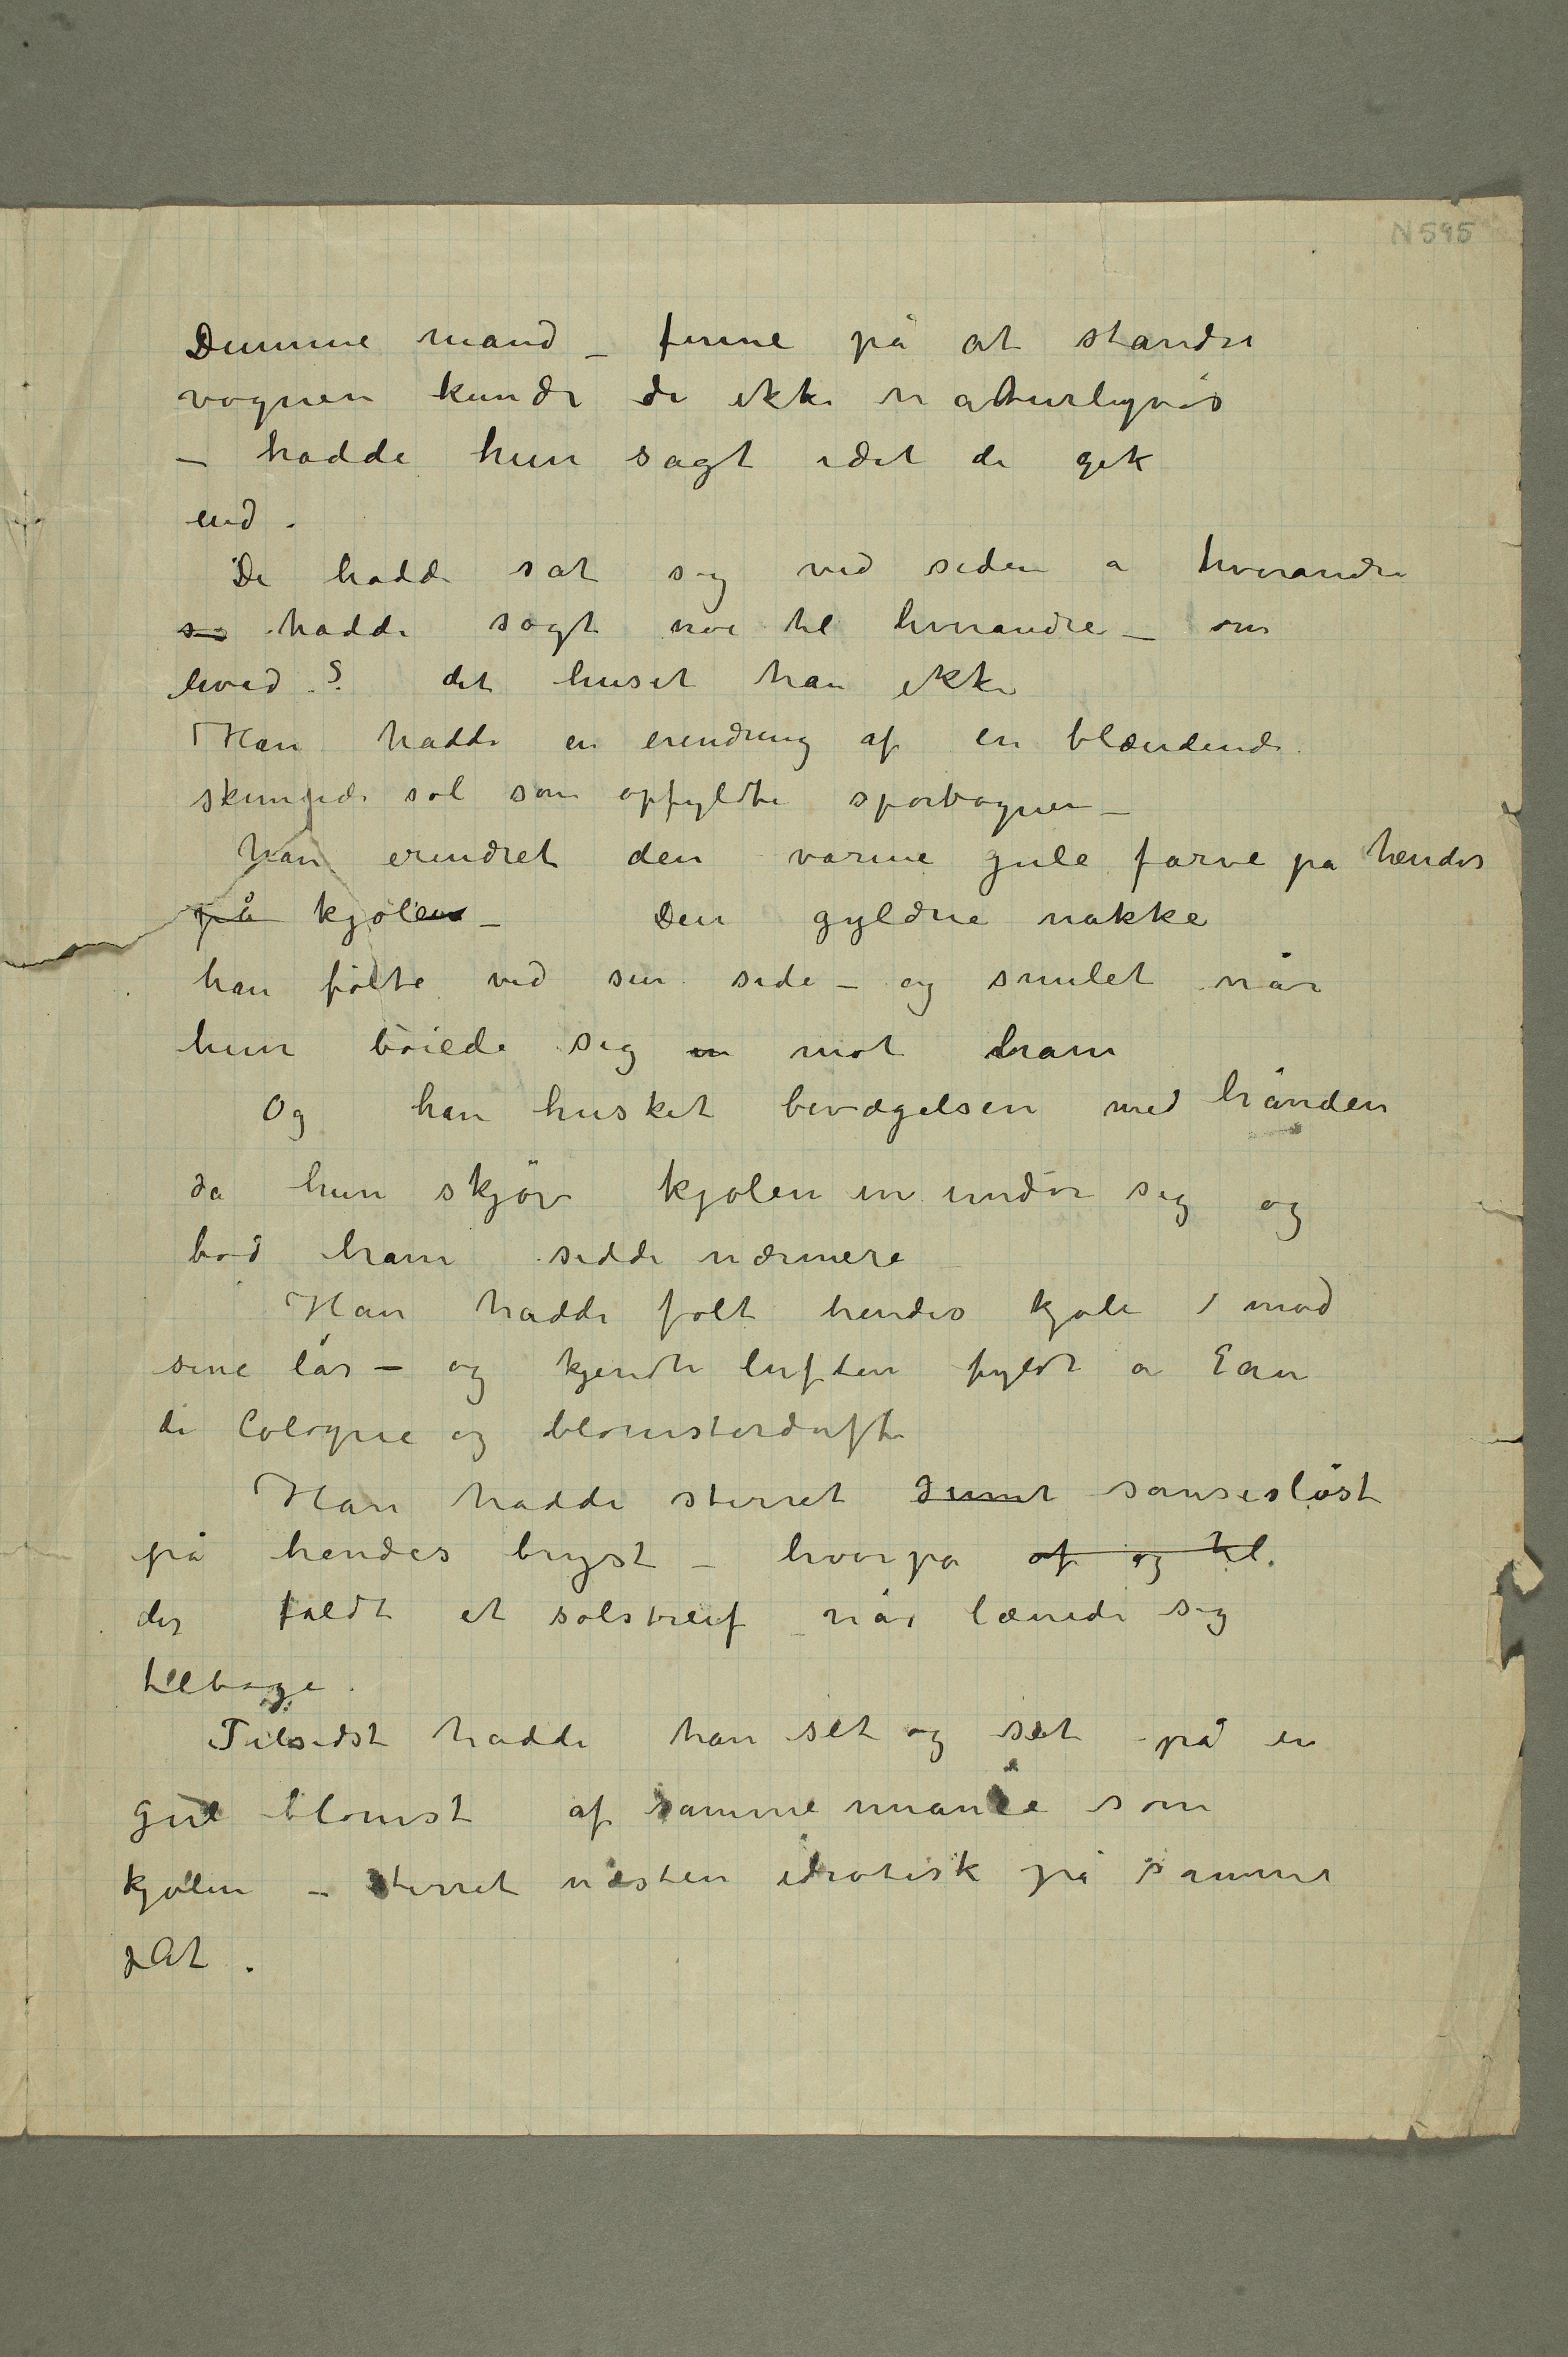 N 595
Dumme mand – finne på at standse
vognen kunde de ikke naturligvis
– hadde hun sagt idet de gik
ind.
De hadde sat sig ved siden a hverandre
så hadde sagt noe til hverandre – om
hvad? det huset han ikke
Han hadde en erindring af en blændende
skinnende sol som opfyldte sporvognen –
han erindret den varme gule farve på hendes
på kjolen – Den gyldne nakke
han følte ved sin side – og smilet når
hun bøiede sig in mot ham
Og han husket bevægelsen med hånden
da hun skjøv kjolen in under sig og
bød ham sidde nærmere
Han hadde følt hendes kjole mod
sine lår – og kjendte luften fyldt a Eau
de Cologne og blomsterduft
Han hadde stirret dumt sansesløst
på hendes bryst – hvorpå af og til
der faldt et solstreif når lænede sig
tilbage.
Tilsidst hadde han set og set på en
gul blomst af samme nuance som
kjolen – stirret næsten idiotisk på samme
plet.